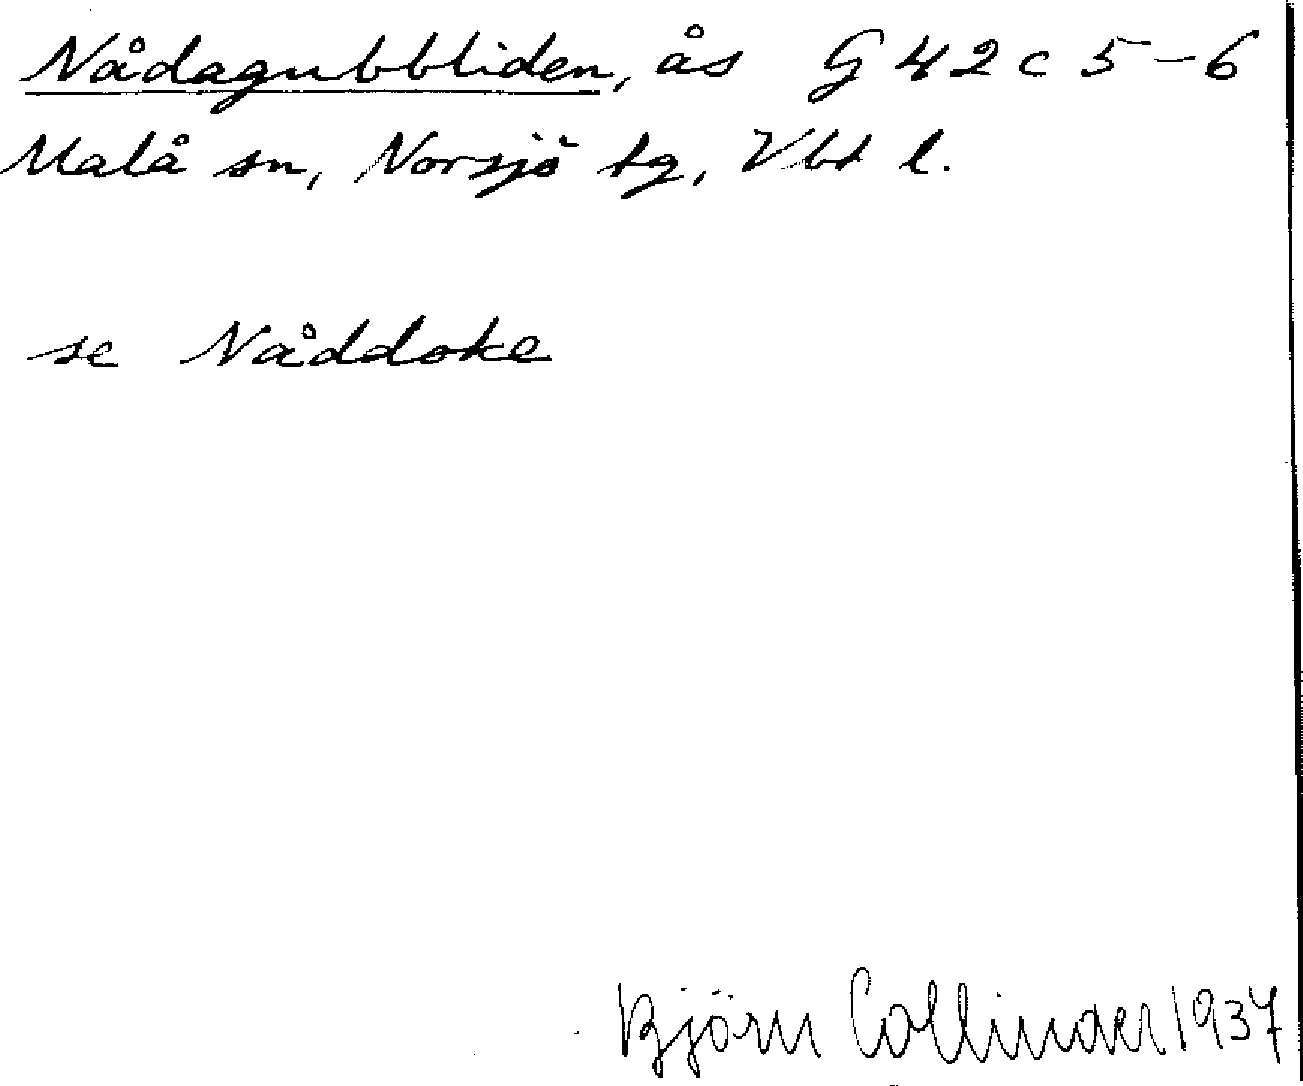 Nådagubbliden, ås G 42 c 5-6
Malå sn, Norsjö tg, Vbt l.
se Nåddoke
Björn Collinder 1937